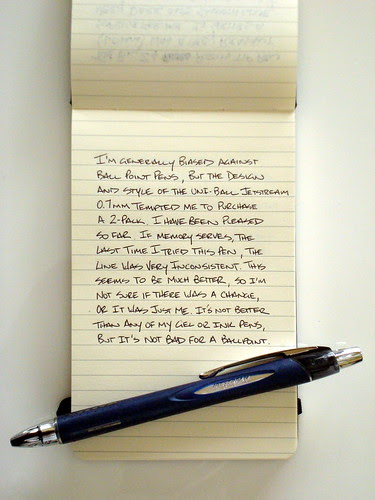 I'm generally biased against
ball point pens, but the design
and style of the Uni-Ball Jetstream
0.7mm tempted me to purchase
a 2-pack. I have been pleased
so far. If memory serves, the
last time I tried this pen, the
line was very inconsistent. This
seems to be much better, so I'm
not sure if there was a change,
or it was just me. It's not better
than any of my gel or ink pens,
but it's not bad for a ballpoint.